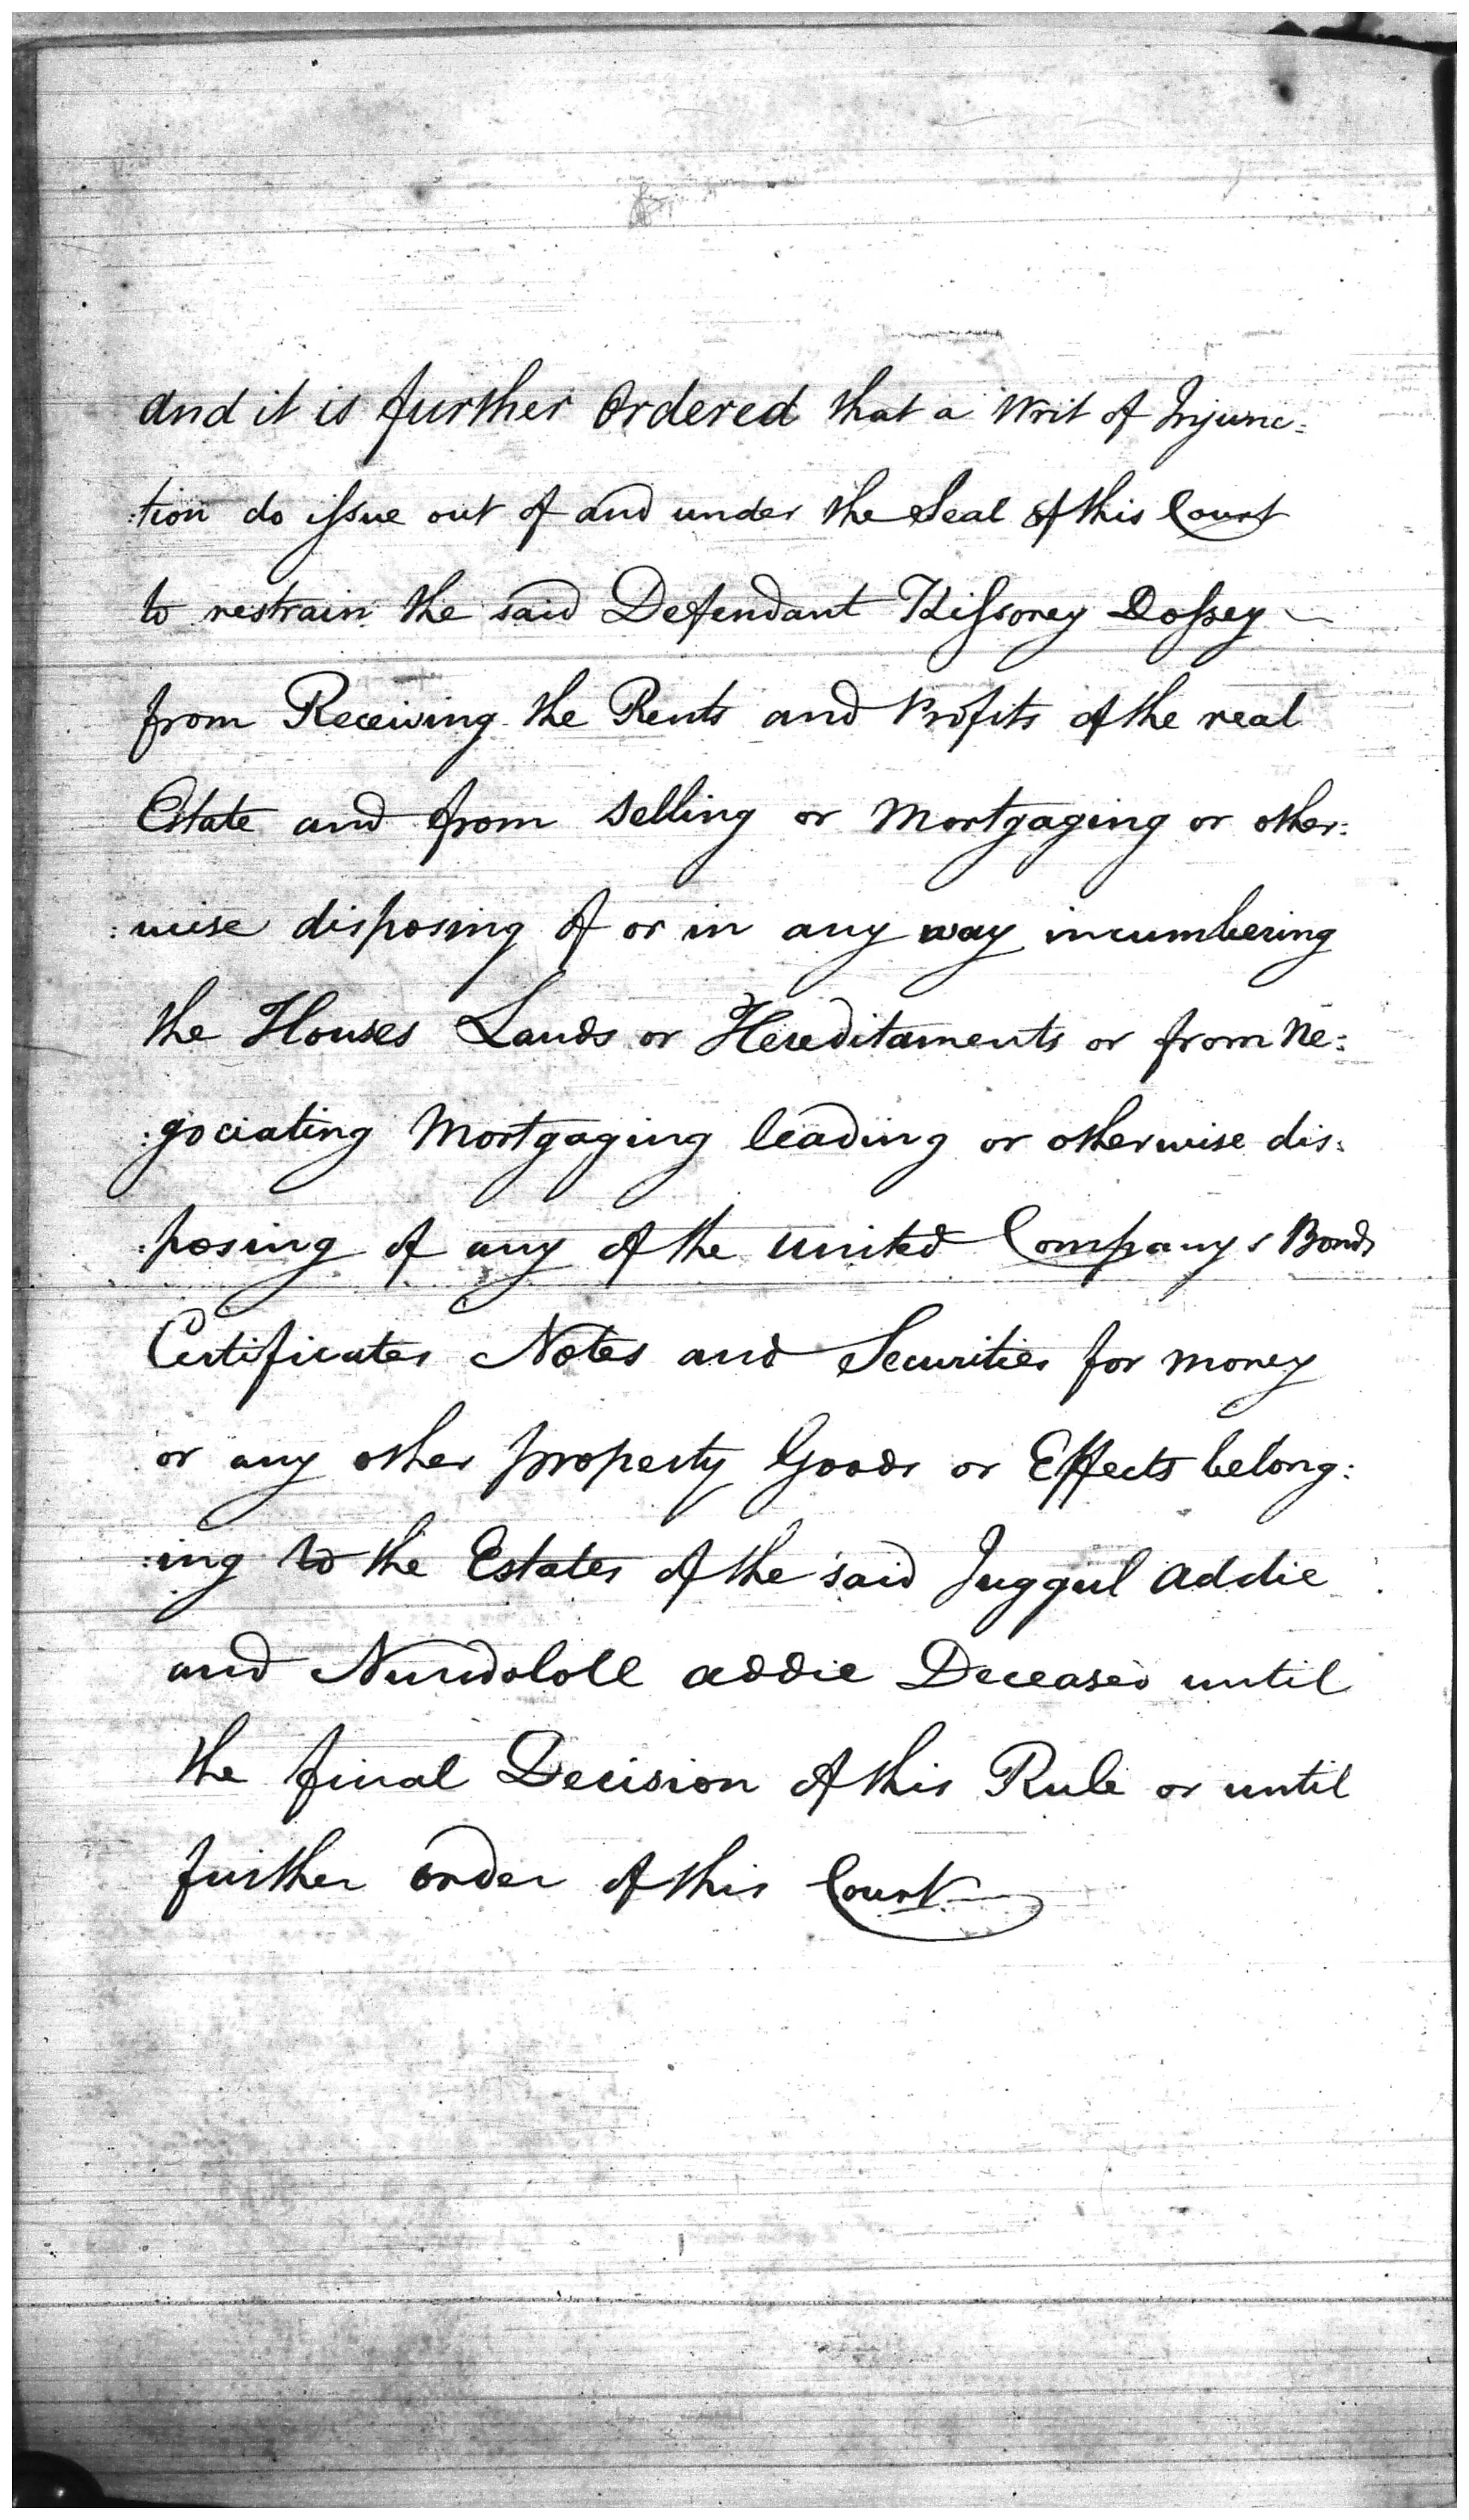 and it is further Ordered that a Writ of Injunc=
:tion do issue out of and under the Seal of this Court
to restrain the said Defendant Kissorey Dossey
from Receiving the Rents and Profits of the real
Estate and from selling or Mortgaging or other:
:wise disposing of or in any way incumbering
the Houses Lands or Hereditaments or from Ne:
:gociating Mortgaging leading or otherwise dis:
:posing of any of the United Companys Bonds
Certificates Notes and Securities for money
or any other property Goods or Effects belong:
:ing to the Estates of the said Juggul Addie
and Nundololl Addie Deceased until
the final Decision of this Rule or until
further order of this Court